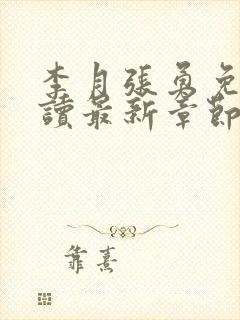 李月張勇免
讀最新章節
靠熹